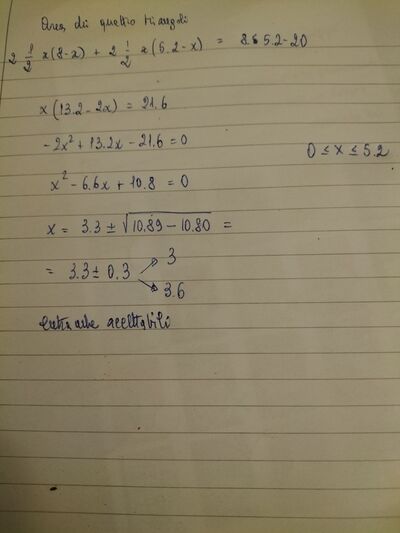 Area di quattro triangoli
2 1/2 x(8-x) + 2 1/2 x(5.2-x) = 8·5.2-20
x(13.2-2x) = 21.6
-2x² + 13.2x - 21.6 = 0
0 ≤ x ≤ 5.2
x² - 6.6x + 10.8 = 0
x = 3.3 ± √10.89 - 10.80 =
= 3.3 ± 0.3 3
3.6
entrambe accettabili